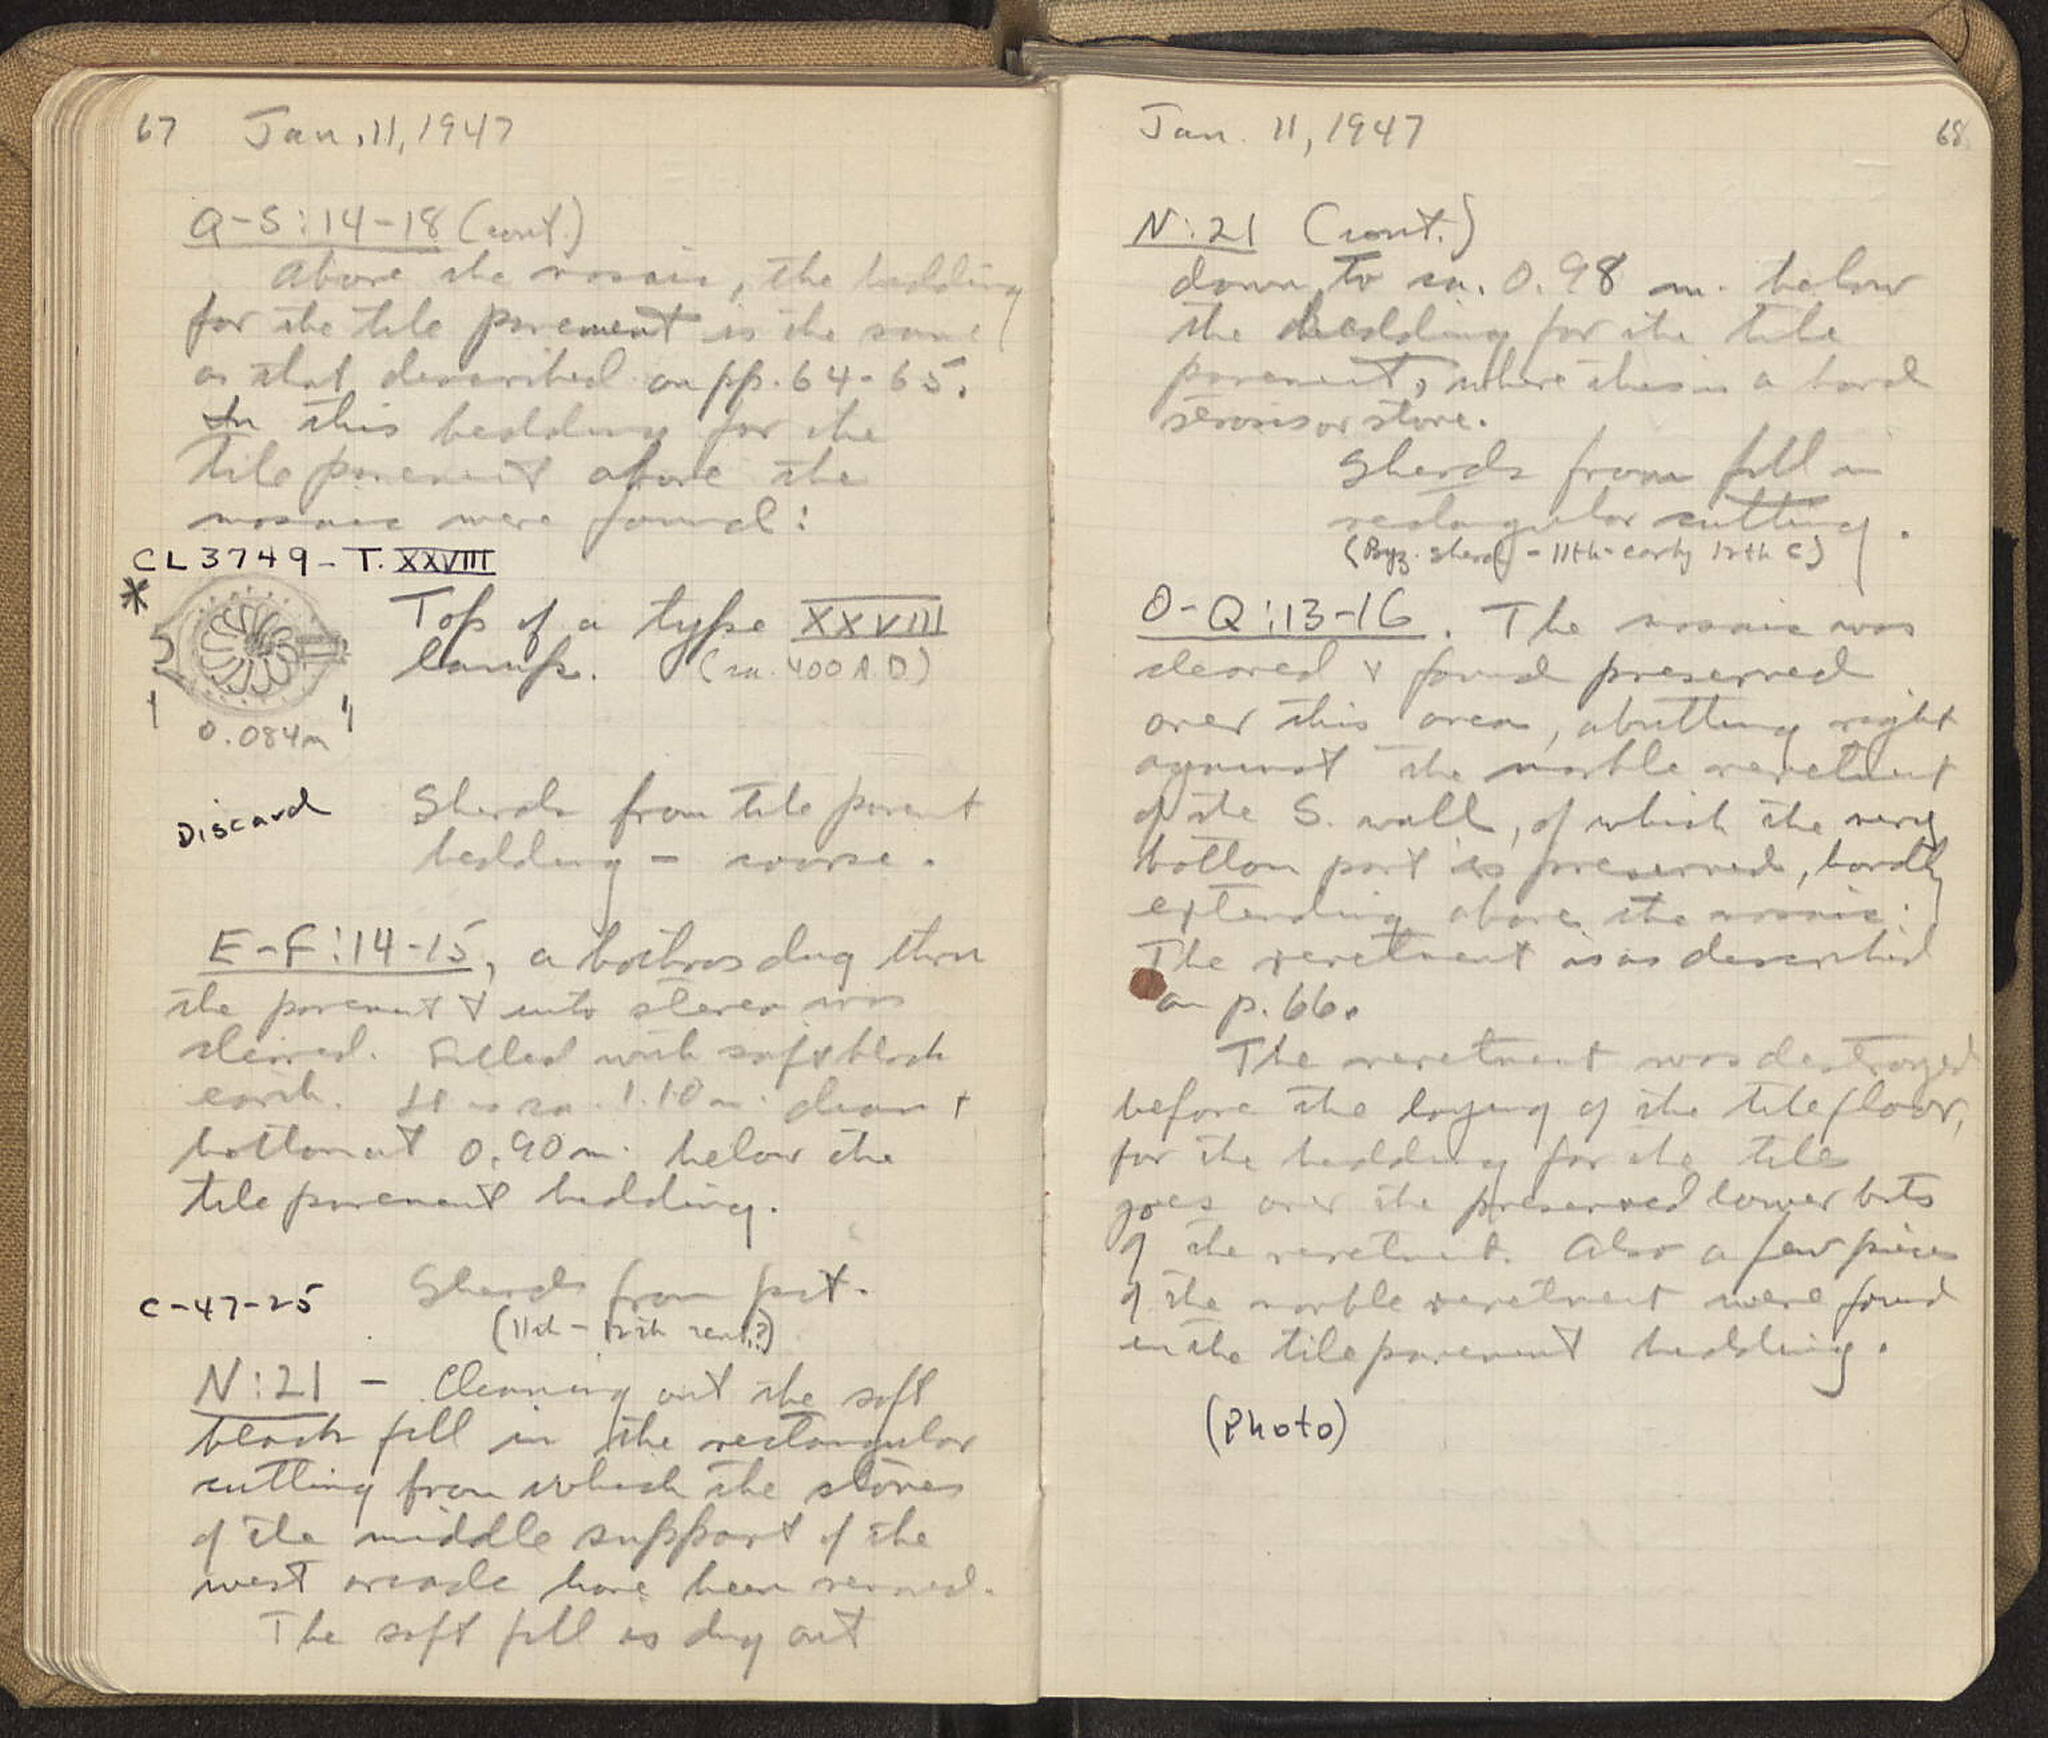 67 Jan. 11, 1947
Q-S:14-18 (cont.)
Above the mosaic, the bedding
for the tile pavement is the same
as that described on pp. 64-65.
In this bedding for the
tile pavement above the
mosaic were found:
CL 3749 - T. XXVIII
*
Top of a type XXVIII
lamp. (ca. 400 A.D)
0.084m
Discard
Sherds from tile pavemt
bedding - coarse.
E-F:14-15, a bothros dug thru
the pavement & into stereo was
cleared. Filled with soft black
earth. It is ca. 1.10 m. diam &
bottom at 0.90 m. below the
tile pavement bedding.
C-47-25
Sherds from pit.
(11th - 12th cent.?)
N:21 - Cleaning out the soft
black fill in the rectangular
cutting from which the stones
of the middle support of the
west arcade have been removed.
The soft fill is dug out
Jan. 11, 1947 68
N:21 (cont.)
down to ca. 0.98 m. below
the bedding for the tile
pavement, where there is a hard
stereo or stone.
Sherds from fill in
rectangular cutting.
(Byz. sherds - 11th-early 12th C)
O-Q:13-16. The mosaic was
cleared & found preserved
over this area, abutting right
against the marble revetment
of the S. wall, of which the very
bottom part is preserved, hardly
extending above the mosaic.
The revetment is as described
on p. 66.
The revetment was destroyed
before the laying of the tile floor,
for the bedding for the tiles
goes over the preserved lower bits
of the revetment. Also a few pieces
of the marble revetment were found
in the tile pavement bedding.
(Photo)